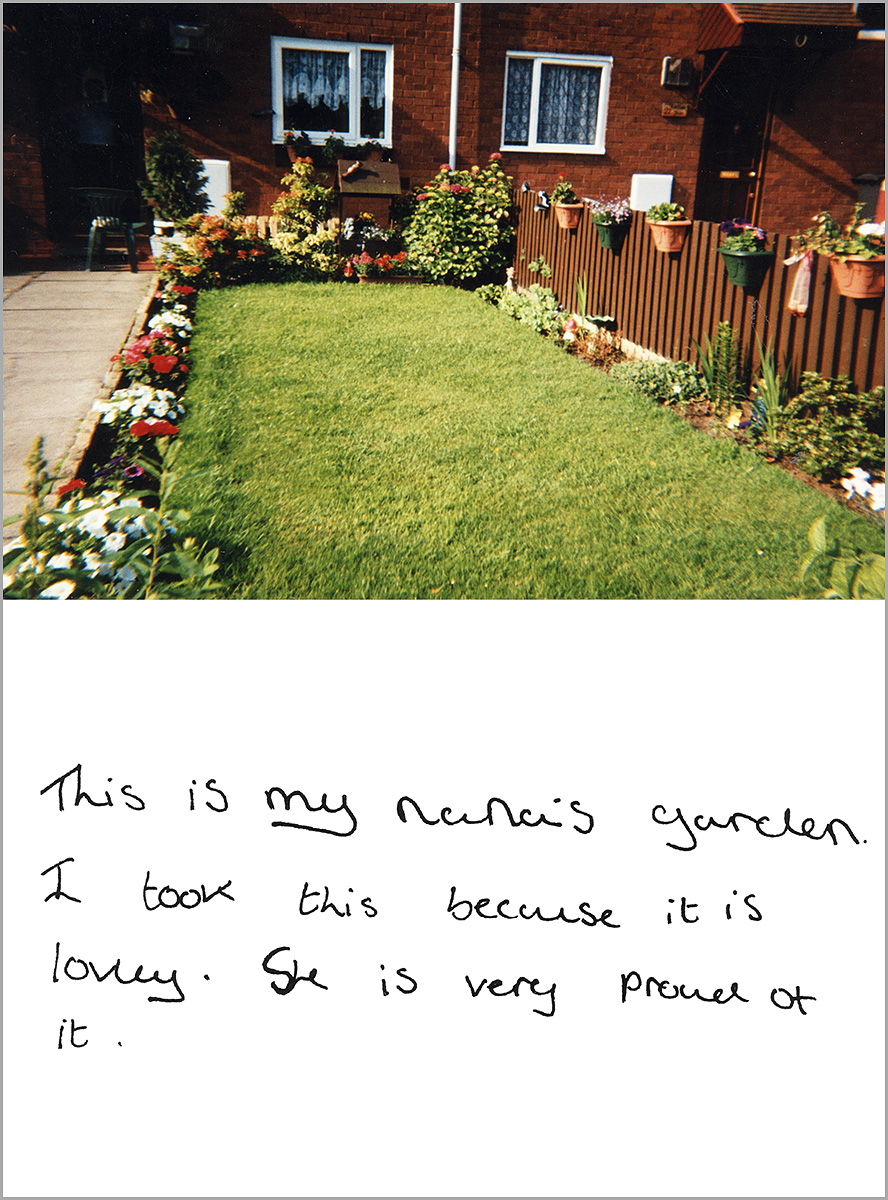 This is my nana's garden.
I took this because it is
lovley. She is very proud of
it.